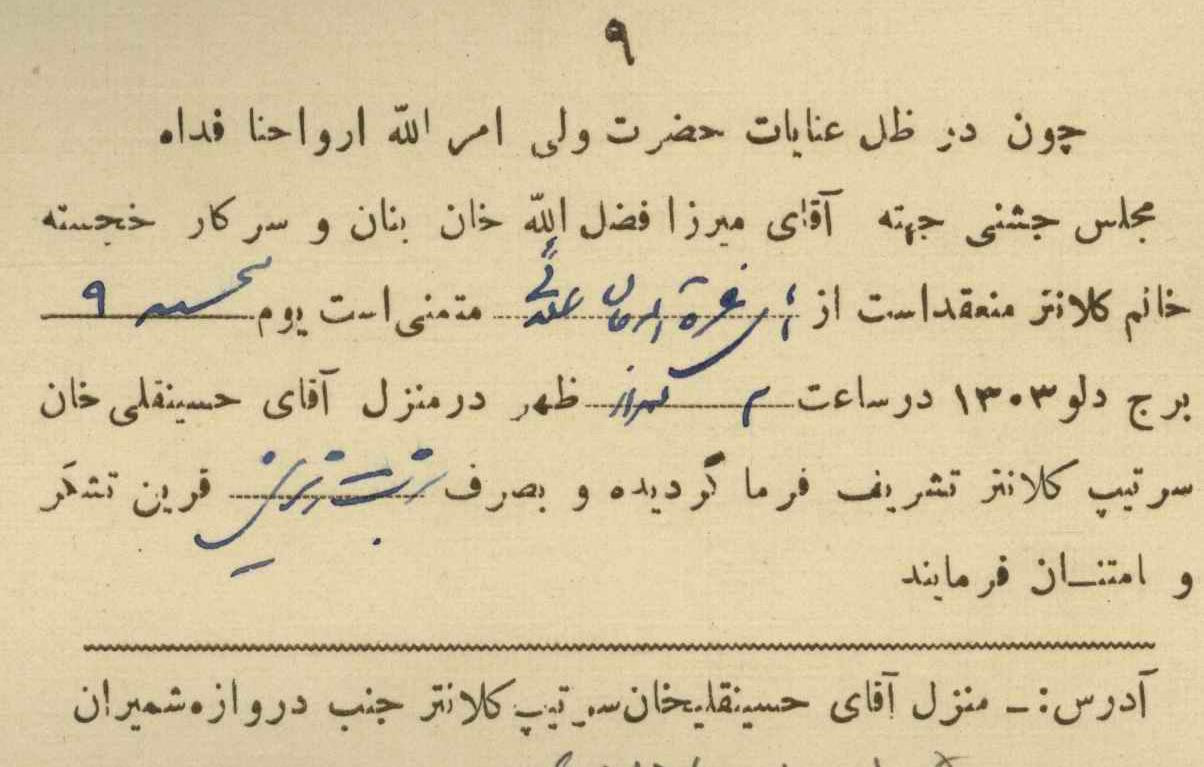 ۹
چون در ظل عنایات حضرت ولی امر الله ارواحنا فداه
مجلس جشنی جهته آقای میرزا فضل الله خان بنان و سرکار خجسته
خانم کلانتر منعقد است از متمنی است یوم ۹
برج دلو ۱۳۰۳ در ساعت ظهر در منزل آقای حسینقلی خان
سرتیپ کلانتر تشریف فرما گردیده و بصرف قرین تشکر
و امتنــان فرمایند
آدرس :ـ منزل آقای حسینقلیخان سرتیپ کلانتر جنب دروازه شمیران